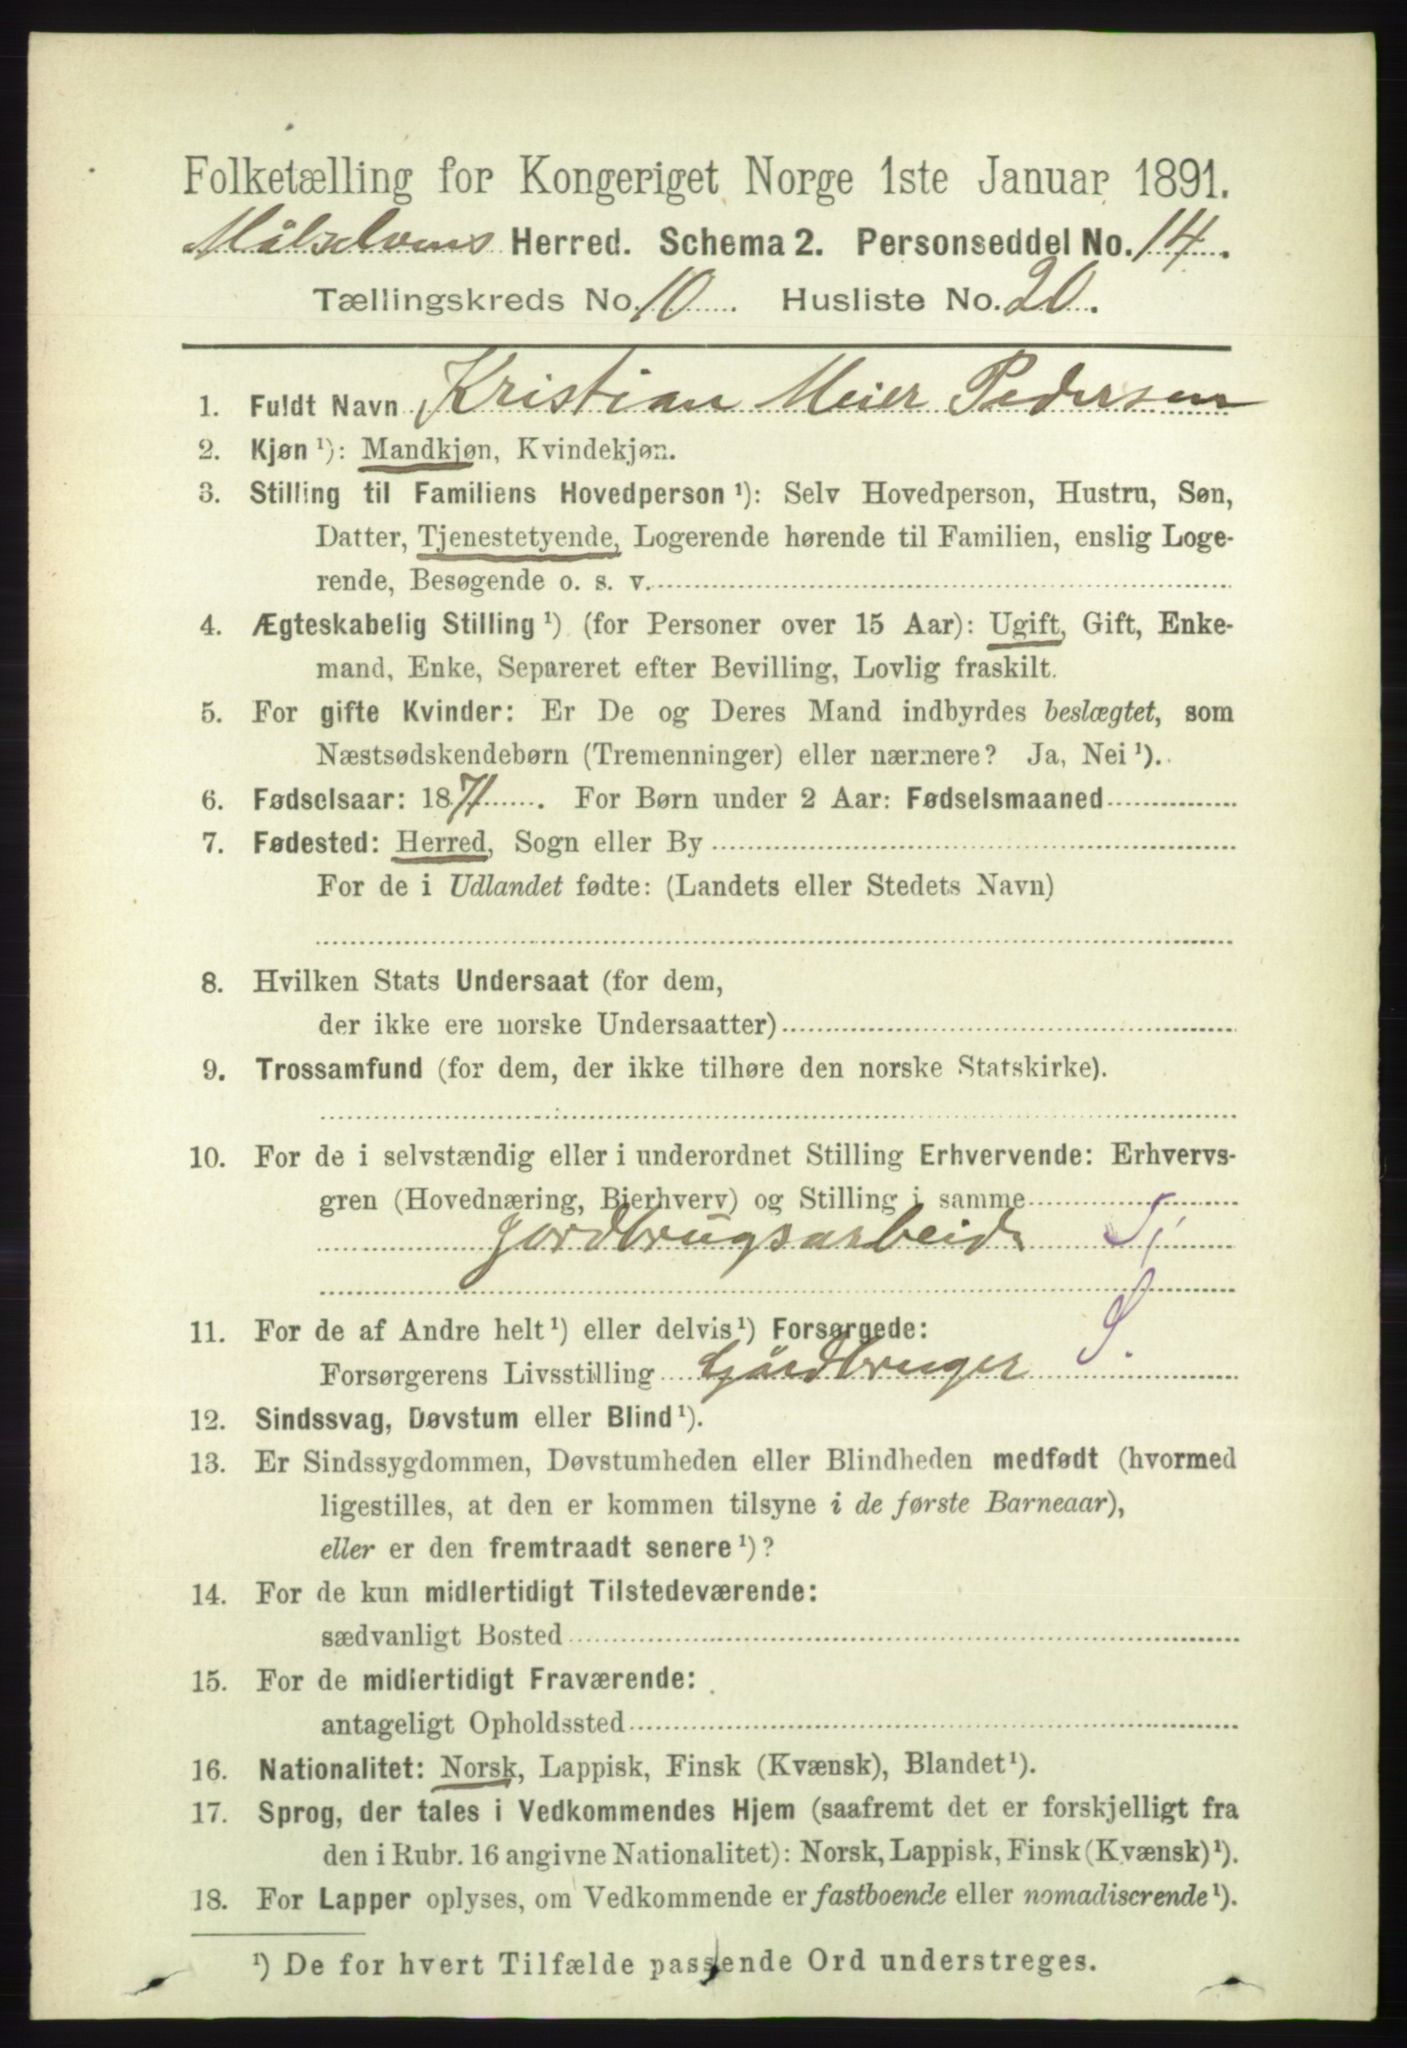 Folketælling for Kongeriget Norge 1ste Januar 1891.
Målselvens Herred. Schema 2. Personseddel No. 14.
Tællingskreds No. 10. Husliste No. 20.
1. Fuldt Navn Kristian Meier Pedersen
2. Kjøn ¹): Mandkjøn, Kvindekjøn.
3. Stilling til Familiens Hovedperson ¹): Selv Hovedperson, Hustru, Søn,
Datter, Tjenestetyende, Logerende hørende til Familien, enslig Loge-
rende, Besøgende o. s. v.
4. Ægteskabelig Stilling ¹) (for Personer over 15 Aar): Ugift, Gift, Enke-
mand, Enke, Separeret efter Bevilling, Lovlig fraskilt.
5. For gifte Kvinder: Er De og Deres Mand indbyrdes beslægtet, som
Næstsødskendebørn (Tremenninger) eller nærmere? Ja, Nei ¹).
6. Fødselsaar: 1871. For Børn under 2 Aar: Fødselsmaaned
7. Fødested: Herred, Sogn eller By
For de i Udlandet fødte: (Landets eller Stedets Navn)
8. Hvilken Stats Undersaat (for dem,
der ikke ere norske Undersaatter)
9. Trossamfund (for dem, der ikke tilhøre den norske Statskirke).
10. For de i selvstændig eller i underordnet Stilling Erhvervende: Erhvervs-
gren (Hovednæring, Bierhverv) og Stilling i samme
Jordbrugsarbeide S,
11. For de af Andre helt ¹) eller delvis ¹) Forsørgede: S.
Forsørgerens Livsstilling Gårdbruger
12. Sindssvag, Døvstum eller Blind ¹).
13. Er Sindssygdommen, Døvstumheden eller Blindheden medfødt (hvormed
ligestilles, at den er kommen tilsyne i de første Barneaar),
eller er den fremtraadt senere ¹)?
14. For de kun midlertidigt Tilstedeværende:
sædvanligt Bosted
15. For de midlertidigt Fraværende:
antageligt Opholdssted
16. Nationalitet: Norsk, Lappisk, Finsk (Kvænsk), Blandet ¹).
17. Sprog, der tales i Vedkommendes Hjem (saafremt det er forskjelligt fra
den i Rubr. 16 angivne Nationalitet): Norsk, Lappisk, Finsk (Kvænsk) ¹).
18. For Lapper oplyses, om Vedkommende er fastboende eller nomadiserende ¹).
¹) De for hvert Tilfælde passende Ord understreges.